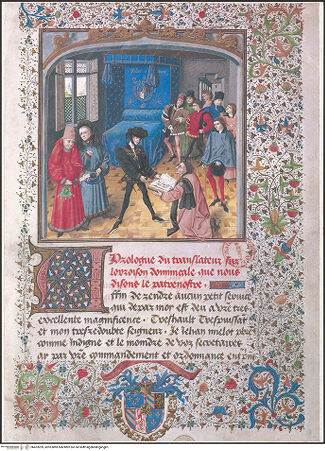 Prologue du translateur sur
loroison dominicale que nous
disons le patenostre.
Afin de rendre aucun petit service
qui de par moy est deu a vre tres
excellente magnificence. Treshault Trespuissat
et mon tresredoubte seigneur. Je Jehan mielot pbre
comme indigne et le mondre de voz secretaires
ay par vre commandement et ordonnance en